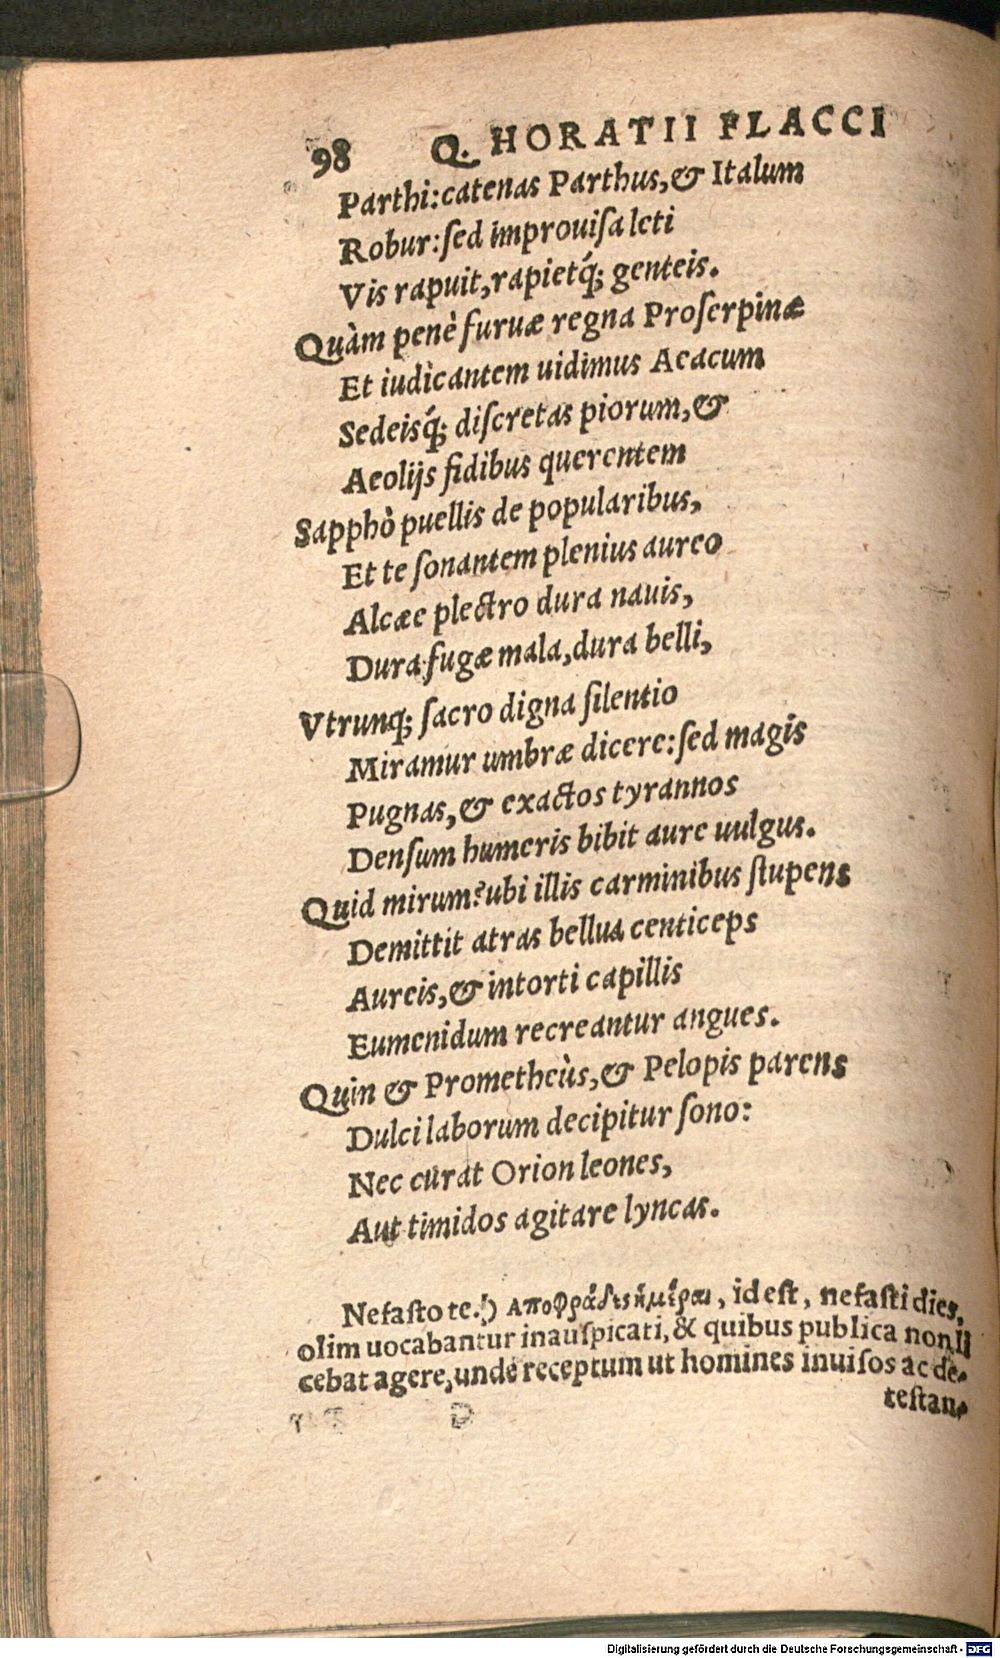 98 Q. HORATII FLACCI
Parthi:catenas Parthus,& Italum
Robur:ſed improuiſa leti
Vis rapuit,rapietq́; genteis.
Quàm penè furuæ regna Proſerpinæ
Et iudicantem uidimus Aeacum
Sedeisq́; diſcretas piorum,&
Aeolijs fidibus querentem
Sapphò puellis de popularibus,
Et te ſonantem plenius aureo
Alcæe plectro dura nauis,
Dura fugæ mala,dura belli,
Vtrunq; ſacro digna ſilentio
Miramur umbræ dicere:ſed magis
Pugnas,& exactos tyrannos
Denſum humeris bibit aure uulgus.
Quid mirum?ubi illis carminibus ſtupens
Demittit atras bellua centiceps
Aureis,& intorti capillis
Eumenidum recreantur angues.
Quin & Prometheùs,& Pelopis parens
Dulci laborum decipitur ſono:
Nec curat Orion leones,
Aut timidos agitare lyncas.
Nefaſto te.) Αποφράδες ἡμέραι, id eſt, nefaſti dies,
olim uocabantur inauſpicati, & quibus publica non li
cebat agere, unde receptum ut homines inuiſos ac de-
teſtan-
Digitalisierung gefördert durch die Deutsche Forschungsgemeinschaft - DFG